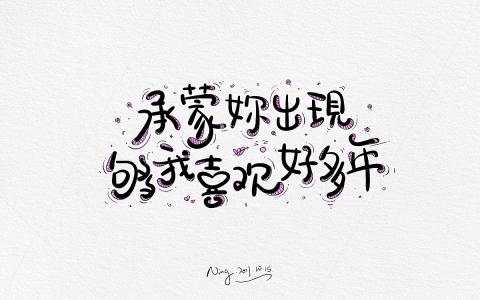 承蒙妳出現
够我喜欢好多年
Ning.2017.10.15